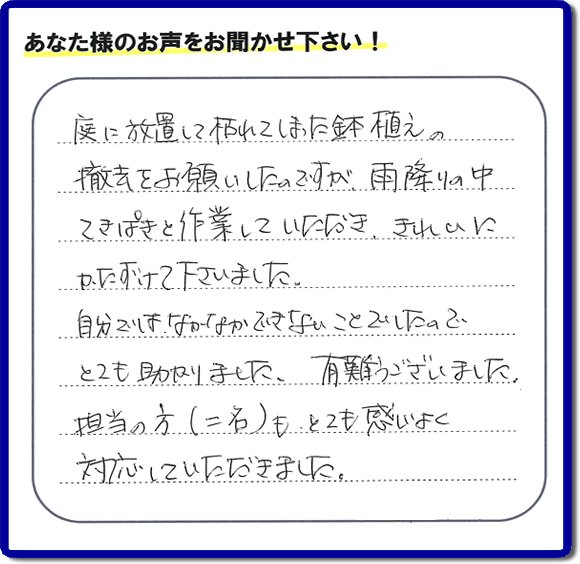 あなた様のお声をお聞かせ下さい！
庭に放置して枯れてしまった鉢植えの
撤去をお願いしたのですが、雨降りの中
てきぱきと作業していただき、きれいに
かたずけて下さいました。
自分では、なかなかできないことでしたので
とても助かりました、有難うございました。
担当の方（二名）も、とても感じよく
対応していただきました。